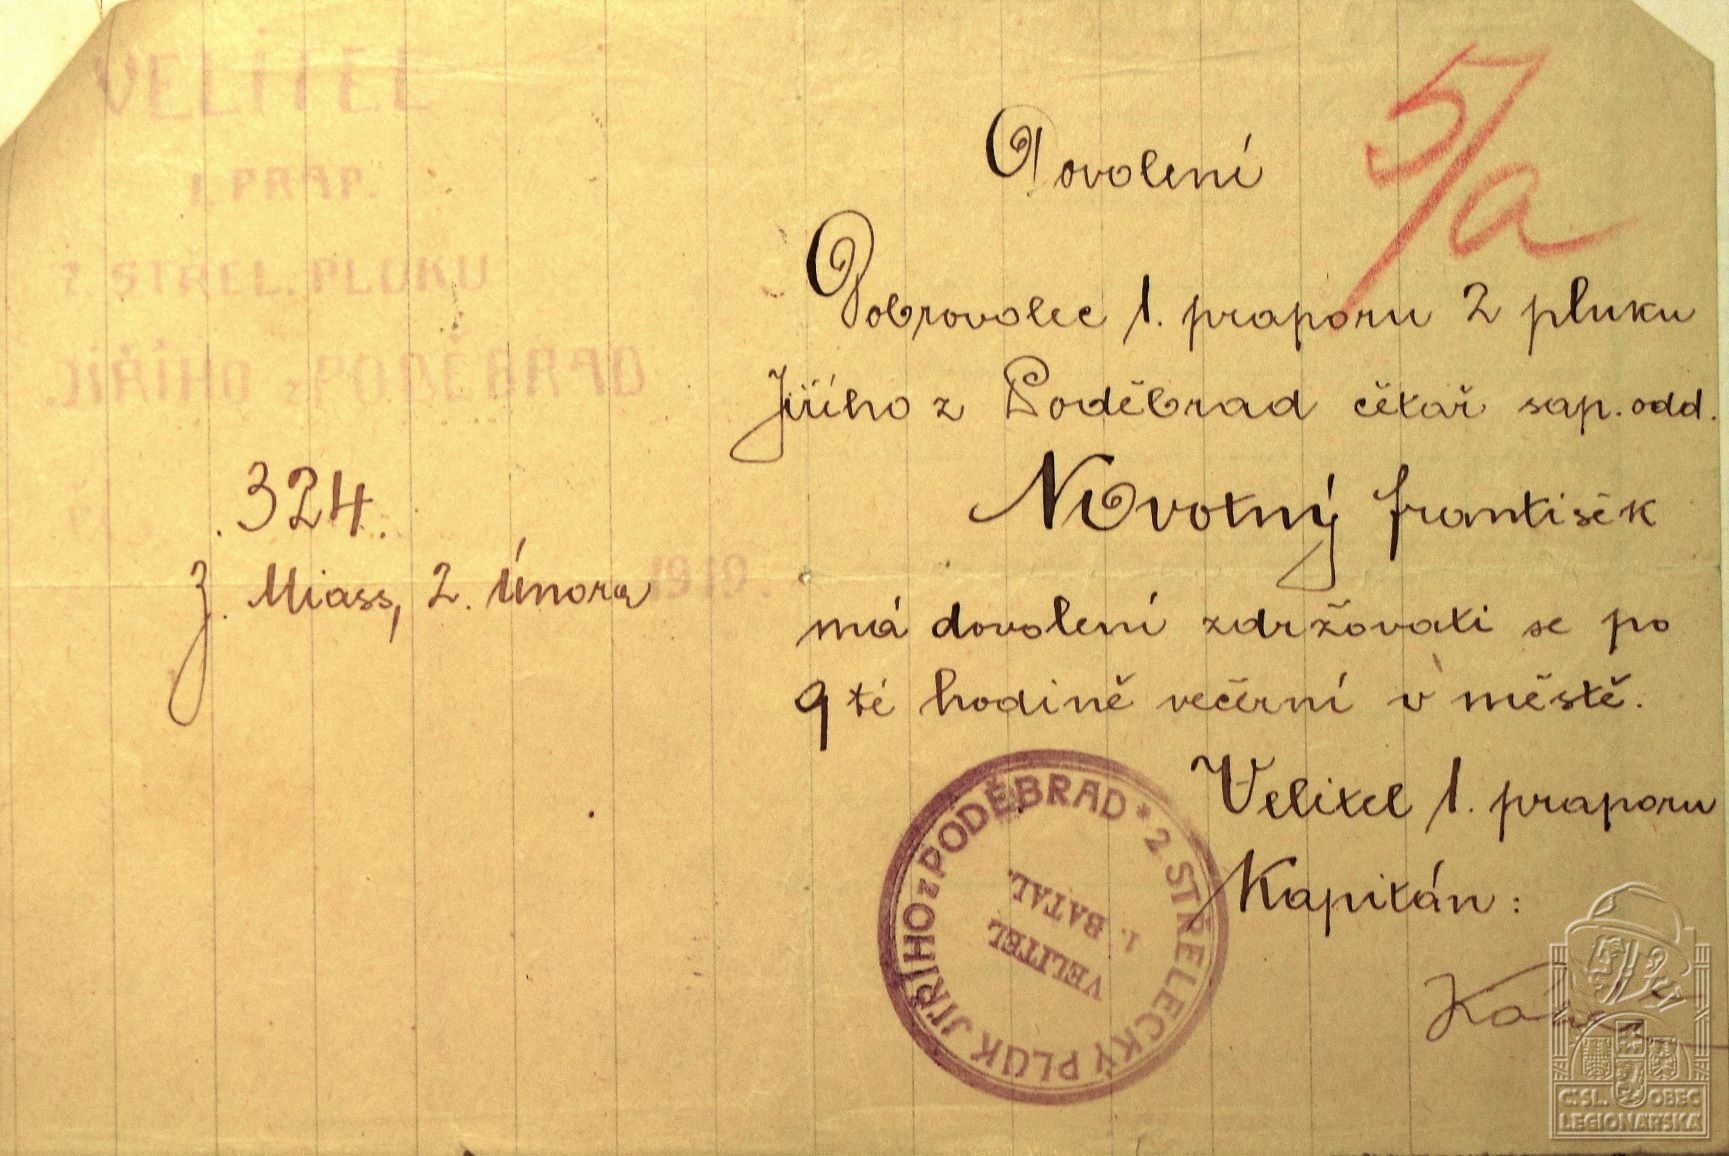 VELITEL
1. PRAP.
2. STŘEL. PLUKU
JIŘÍHO z PODĚBRAD
324.
Miass, 2. Února 1919.
5/a
Dovolení
Dobrovolec 1. praporu 2 pluku
Jiřího z Poděbrad čétař sap. odd.
Novotný František
má dovolení zdržovati se po
9té hodině večerní v městě.
Velitel 1. praporu
Kapitán:
2 STŘELECKÝ PLUK JIŘÍHO z PODĚBRAD *
VELITEL
1. BATAL.
Č:SL. OBEC
LEGIONÁŘSKÁ